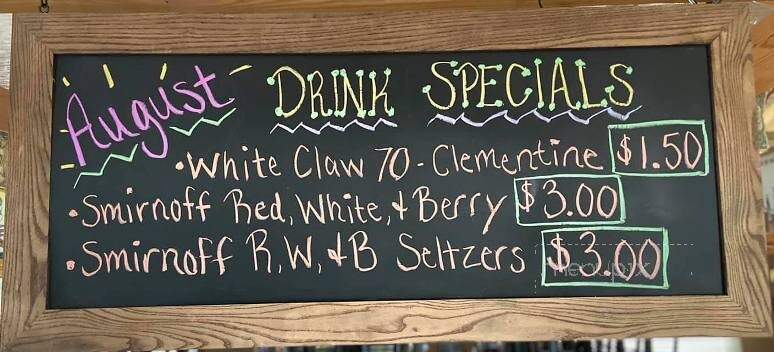 August DRINK SPECIALS
• White Claw 70 - Clementine $1.50
• Smirnoff Red, White, & Berry $3.00
• Smirnoff R, W, & B Seltzers $3.00
menupix